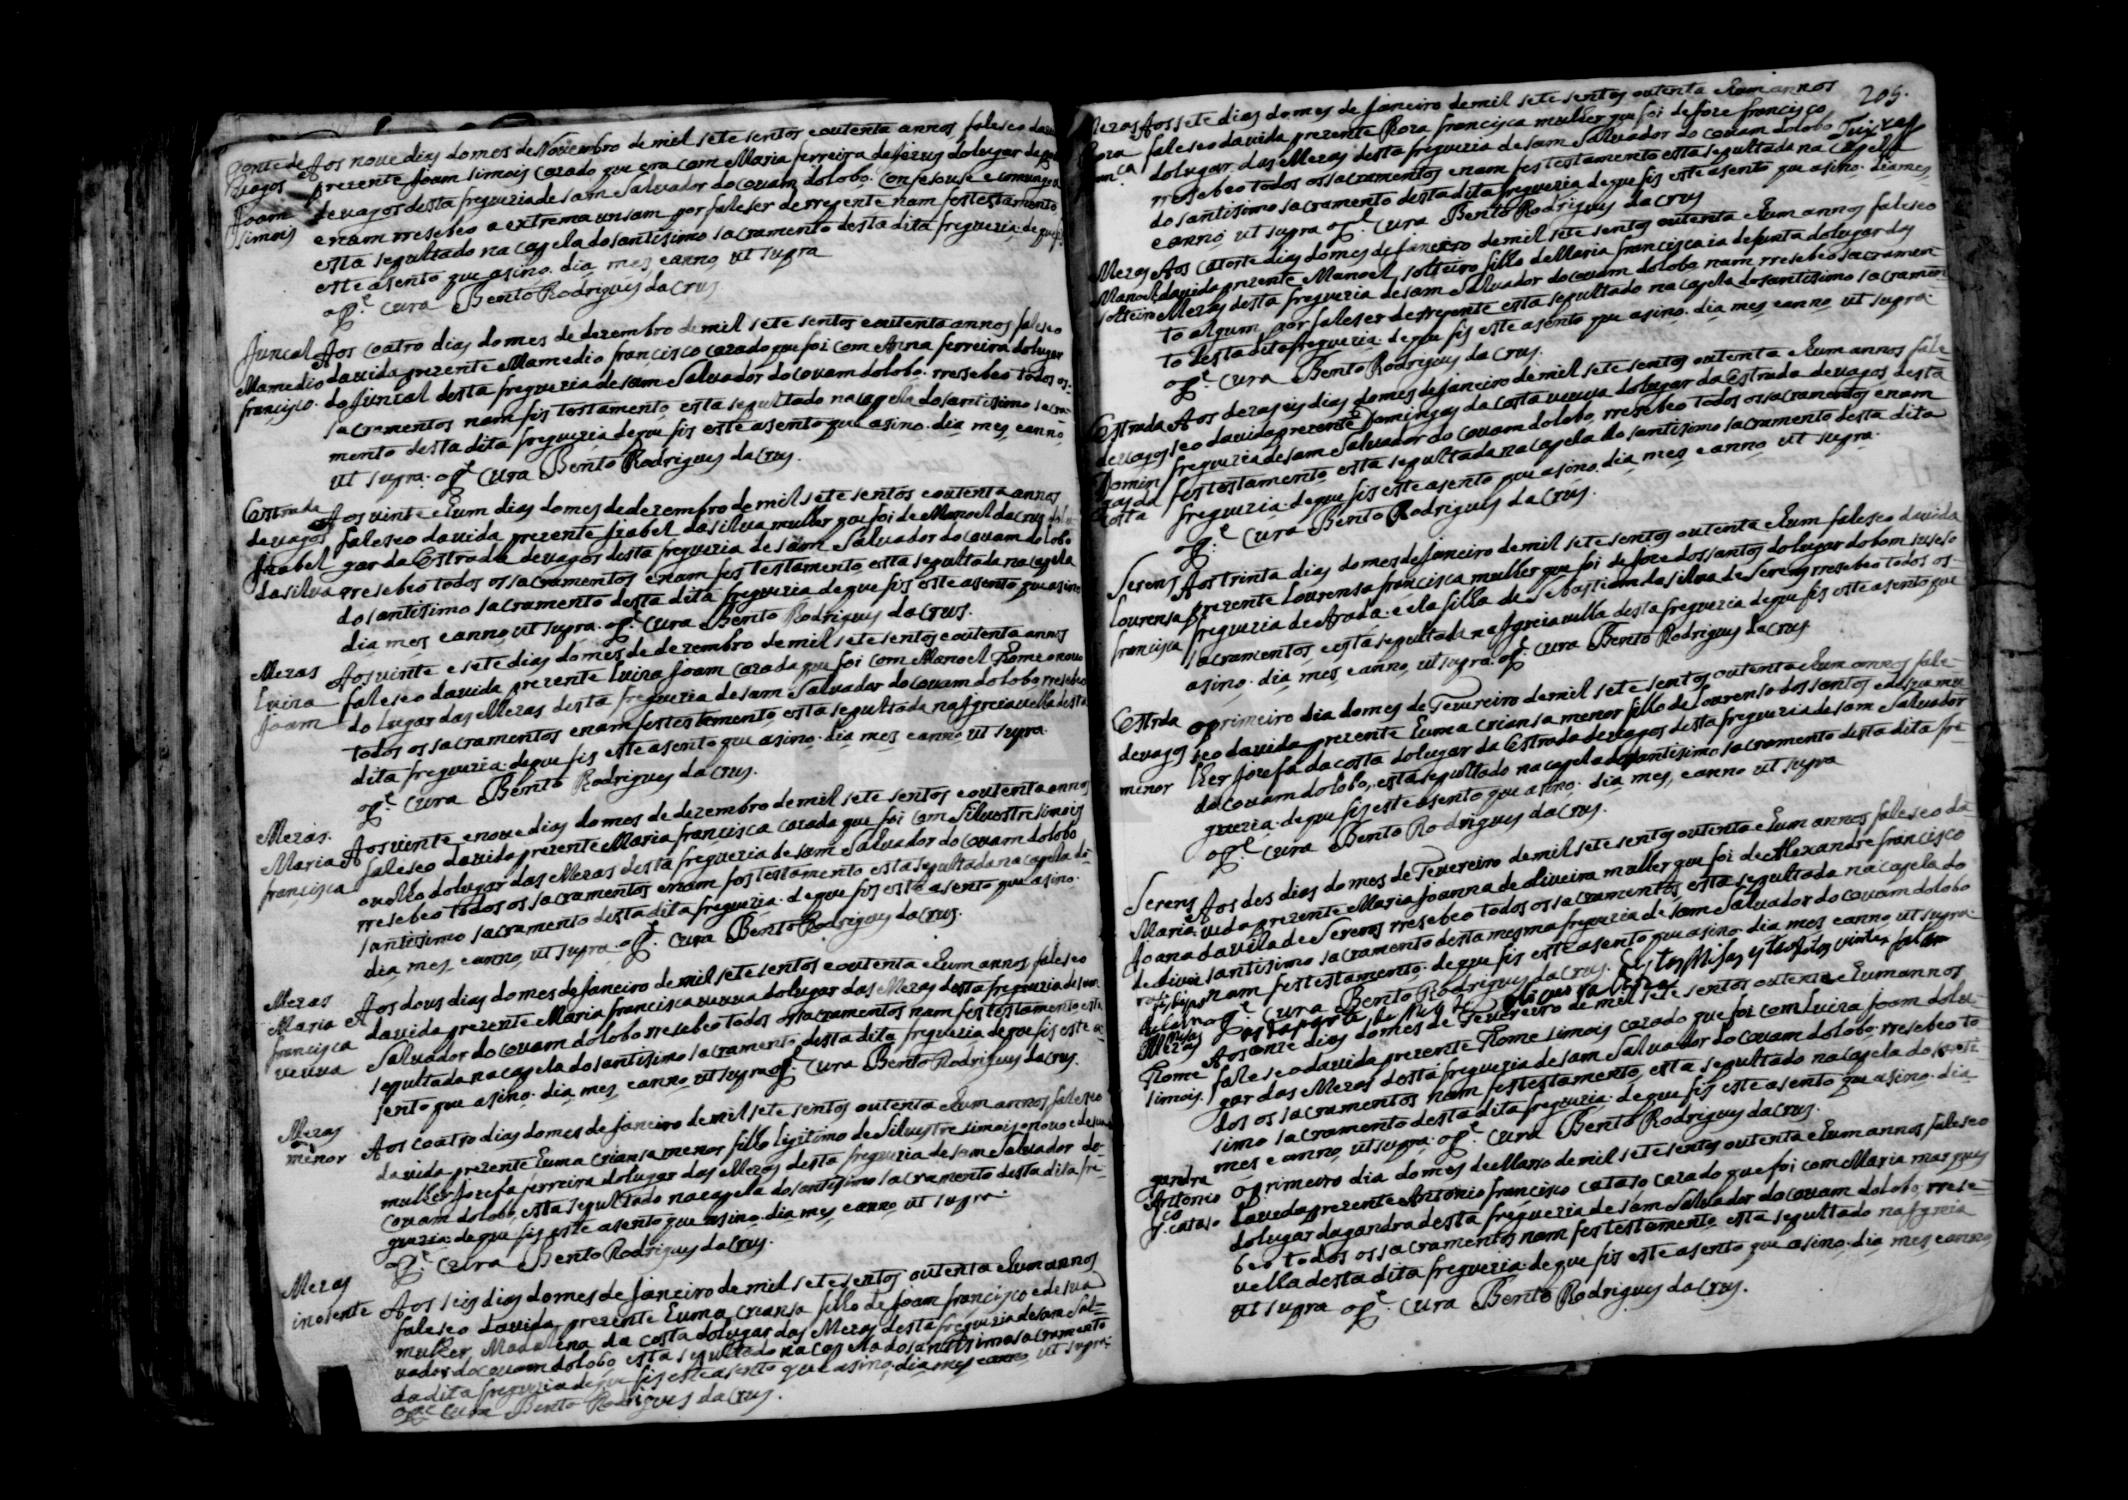 ponte de Aos nove dias do mes de Novembro de mil sete sentos e outenta annos faleseo da vida
vagos prezente Joam simois cazado que era com Maria ferreira de Jezus do lugar da ponte
Joam de vagos desta freguezia de sam Salvador do couam do lobo. Confesouse e comungou
simois e nam rresebeo a extrema unsam por faleser de rrepente nam fes testamento
esta sepultado na capela do santisimo sacramento desta dita freguezia. de que fis
este asento que asino. dia mes e anno ut supra
o Pe. Cura Bento Rodrigues da Crus.
Juncal Aos coatro dias do mes de dezembro de mil sete sentos e outenta annos faleseo
Mamedio da vida prezente Mamedio francisco cazado que foi com Anna ferreira do lugar
francisco. do Juncal desta freguezia de sam Salvador do couam do lobo. rresebeo todos os
sacramentos nam fes testamento esta sepultado na capela do santisimo sacra-
mento desta dita freguezia de que fis este asento que asino. dia mes e anno
ut supra. o Pe. Cura Bento Rodrigues da Crus.
Estrada Aos vinte e hum dias do mes de dezembro de mil sete sentos e outenta annos
de vagos faleseo da vida prezente Izabel da silva mulher que foi de Manoel da Crus do lu-
Izabel gar da Estrada de vagos desta freguezia de sam Salvador do couam do lobo
da silva rresebeo todos os sacramentos e nam fes testamento esta sepultada na capela
do santisimo sacramento desta dita freguezia de que fis este asento que asino
dia mes e anno ut supra. o Pe. Cura Bento Rodrigues da Crus.
Mezas Aos vinte e sete dias do mes de dezembro de mil sete sentos e outenta annos
Luiza faleseo da vida prezente Luiza Joam cazada que foi com Manoel Thome o novo
Joam do lugar das Mezas desta freguezia de sam Salvador do couam do lobo rresebeo
todos os sacramentos e nam fes testamento esta sepultada na Igreia velha desta
dita freguezia. de que fis este asento que asino. dia mes e anno ut supra.
o Pe. Cura Bento Rodrigues da Crus.
Mezas. Aos vinte e nove dias do mes de dezembro de mil sete sentos e outenta annos
Maria faleseo da vida prezente Maria francisca cazada que foi com Silvestre simois
francisca o velho do lugar das Mezas desta freguezia de sam Salvador do couam do lobo
rresebeo todos os sacramentos e nam fes testamento esta sepultada na capela do
santisimo sacramento desta dita freguezia. de que fis este asento que asino.
dia mes e anno ut supra. o Pe. Cura Bento Rodrigues da Crus.
Mezas Aos dous dias do mes de Janeiro de mil sete sentos e outenta e hum annos faleseo
Maria da vida prezente Maria francisca veuva do lugar das Mezas desta freguezia de sam
francisca Salvador do couam do lobo rresebeo todos os sacramentos nam fes testamento esta
veuva sepultada na capela do santisimo sacramento desta dita freguezia de que fis este a-
sento que asino. dia mes e anno ut supra o Pe. Cura Bento Rodrigues da Crus.
Mezas Aos coatro dias do mes de Janeiro de mil sete sentos outenta e hum annos faleseo
menor da vida prezente huma criansa menor filho ligitimo de Silvestre simois o novo e de sua
mulher Jozefa ferreira do lugar das Mezas desta freguezia de sam Salvador do
couam do lobo esta sepultado na capela do santisimo sacramento desta dita fre-
guezia. de que fis este asento que asino. dia mes e anno ut supra.
o Pe. Cura Bento Rodrigues da Crus.
Mezas Aos seis dias do mes de Janeiro de mil sete sentos outenta e hum annos
inosente faleseo da vida prezente huma criansa filho de Joam francisco e de sua
mulher Madalena da costa do lugar das Mezas desta freguezia de sam Sal-
vador do couam do lobo esta sepultado na capela do santisimo sacramento
da dita freguezia de que fis este asento que asino. dia mes e anno ut supra.
o Pe. Cura Bento Rodrigues da Crus.
205.
Mezas Aos sete dias do mes de Janeiro de mil sete sentos outenta e hum annos
Roza faleseo da vida prezente Roza francisca mulher que foi de Joze francisco
do lugar das Mezas desta freguezia de sam Salvador do couam do lobo
rresebeo todos os sacramentos e nam fes testamento esta sepultada na capela
do santisimo sacramento desta dita freguezia de que fis este asento que asino. dia mes
e anno ut supra o Pe. Cura Bento Rodrigues da Crus
Mezas Aos catorse dias do mes de Janeiro de mil sete sentos outenta e hum annos faleseo
Manoel da vida prezente Manoel solteiro filho de Maria francisca ia defunta do lugar das
solteiro Mezas desta freguezia de sam Salvador do couam do lobo nam rresebeo sacramen-
to algum por faleser de rrepente esta sepultado na capela do santisimo sacramen-
to desta dita freguezia. de que fis este asento que asino. dia mes e anno ut supra.
o Pe. Cura Bento Rodrigues da Crus.
Estrada Aos dezaseis dias do mes de Janeiro de mil sete sentos outenta e hum annos fale-
de vagos seo da vida prezente Domingas da costa veuva do lugar da Estrada de vagos desta
Domin freguezia de sam Salvador do couam do lobo rresebeo todos os sacramentos e nam
gas da fes testamento esta sepultada na capela do santisimo sacramento desta dita
Costa freguezia. de que fis este asento que asino. dia mes e anno ut supra.
o Pe. Cura Bento Rodrigues da Crus.
Serens Aos trinta dias do mes de Janeiro de mil sete sentos outenta e hum faleseo da vida
Lourensa prezente Lourensa francisca mulher que foi de Joze dos santos do lugar do bom suseso
francisca freguezia de Arada. e ela filha de Sebastiam da silva de Serens rresebeo todos os
sacramentos e esta sepultada na Igreia velha desta freguezia de que fis este asento que
asino. dia mes e anno ut supra. o Pe. Cura Bento Rodrigues da Crus.
Estrada o primeiro dia do mes de Fevereiro de mil sete sentos outenta e hum annos fale-
de vagos seo da vida prezente huma criansa menor filho de Lourenso dos santos e de sua mu-
menor lher Jozefa da costa do lugar da Estrada de vagos desta freguezia de sam Salvador
do couam do lobo, esta sepultado na capela do santisimo sacramento desta dita fre-
guezia. de que fis este asento que asino. dia mes, e anno ut supra
o Pe. Cura Bento Rodrigues da Crus.
Serens Aos des dias do mes de Fevereiro de mil sete sentos outenta e hum annos faleseo da
Maria vida prezente Maria Joanna de oliveira mulher que foi de Alexandre francisco
Joana da vila de Serens rresebeo todos os sacramentos, esta sepultada na capela do
de olivei santisimo sacramento desta mesma freguezia de sam Salvador do couam do lobo
nam fes testamento. de que fis este asento que asino. dia mes e anno ut supra.
o Pe. Cura Bento Rodrigues da Crus.
Mezas Aos onze dias do mes de Fevereiro de mil sete sentos outenta e hum annos
Thome faleseo da vida prezente Thome simois cazado que foi com Luiza Joam do lu-
simois. gar das Mezas desta freguezia de sam Salvador do couam do lobo rresebeo to-
dos os sacramentos nam fes testamento, esta sepultado na capela do santi-
simo sacramento desta dita freguezia. de que fis este asento que asino. dia
mes e anno ut supra. o Pe. Cura Bento Rodrigues da Crus.
gandra o primeiro dia do mes de Marso de mil sete sentos outenta e hum annos faleseo
Antonio da vida prezente Antonio francisco cataso cazado que foi com Maria marques
cataso do lugar da gandra desta freguezia de sam Salvador do couam do lobo, rrese-
beo todos os sacramentos nam fes testamento esta sepultado na Igreia
velha desta dita freguezia. de que fis este asento que asino. dia mes e anno
ut supra o Pe. Cura Bento Rodrigues da Crus.